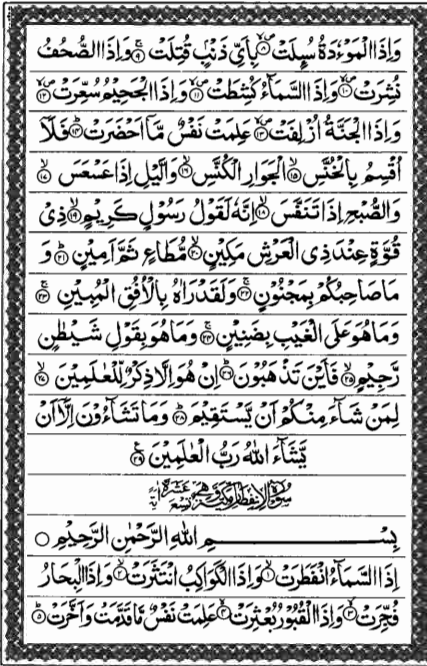 وَاِذَا الْمَوْءٗدَةُ سُىِٕلَتْ ۪ۙ‏﴿۸﴾ بِاَىِّ ذَنْۢبٍ قُتِلَتْ ۚ﴿۹﴾ وَاِذَا الصُّحُفُ
نُشِرَتْ ۪ۙ‏﴿۱۰﴾ وَاِذَا السَّمَآءُ كُشِطَتْ ۪ۙ‏﴿۱۱﴾ وَاِذَا الْجَحِيْمُ سُعِّرَتْ ۪ۙ‏﴿۱۲﴾
وَاِذَا الْجَنَّةُ اُزْلِفَتْ ۪ۙ‏﴿۱۳﴾ عَلِمَتْ نَفْسٌ مَّاۤ اَحْضَرَتْ ؕ﴿۱۴﴾ فَلَاۤ
اُقْسِمُ بِالْخُنَّسِ ۙ﴿۱۵﴾ الْجَوَارِ الْكُنَّسِ ۙ﴿۱۶﴾ وَالَّيْلِ اِذَا عَسْعَسَ ۙ﴿۱۷﴾
وَالصُّبْحِ اِذَا تَنَفَّسَ ۙ﴿۱۸﴾ اِنَّهٗ لَقَوْلُ رَسُوْلٍ كَرِيْمٍ ۙ﴿۱۹﴾ ذِىْ
قُوَّةٍ عِنْدَ ذِى الْعَرْشِ مَكِيْنٍ ۙ﴿۲۰﴾ مُّطَاعٍ ثَمَّ اَمِيْنٍ ؕ﴿۲۱﴾ وَ
مَا صَاحِبُكُمْ بِمَجْنُوْنٍ ۚ﴿۲۲﴾ وَلَقَدْ رَاٰهُ بِالْاُفُقِ الْمُبِيْنِ ۚ﴿۲۳﴾
وَمَا هُوَ عَلَى الْغَيْبِ بِضَنِيْنٍ ۚ﴿۲۴﴾ وَمَا هُوَ بِقَوْلِ شَيْطٰنٍ
رَّجِيْمٍ ۙ﴿۲۵﴾ فَاَيْنَ تَذْهَبُوْنَ ؕ﴿۲۶﴾ اِنْ هُوَ اِلَّا ذِكْرٌ لِّلْعٰلَمِيْنَ ۙ﴿۲۷﴾
لِمَنْ شَآءَ مِنْكُمْ اَنْ يَّسْتَقِيْمَ ؕ﴿۲۸﴾ وَمَا تَشَآءُوْنَ اِلَّاۤ اَنْ
يَّشَآءَ اللّٰهُ رَبُّ الْعٰلَمِيْنَ ﴿۲۹﴾
سُوْرَةُ الْاِنْفِطَارِ مَكِّيَّةٌ وَّهِىَ تِسْعَ عَشْرَةَ اٰيَةً
بِسْمِ اللّٰهِ الرَّحْمٰنِ الرَّحِيْمِ ۝
اِذَا السَّمَآءُ انْفَطَرَتْ ۙ﴿۱﴾ وَاِذَا الْكَوَاكِبُ انْتَثَرَتْ ۙ﴿۲﴾ وَاِذَا الْبِحَارُ
فُجِّرَتْ ۙ﴿۳﴾ وَاِذَا الْقُبُوْرُ بُعْثِرَتْ ۙ﴿۴﴾ عَلِمَتْ نَفْسٌ مَّا قَدَّمَتْ وَاَخَّرَتْ ؕ﴿۵﴾